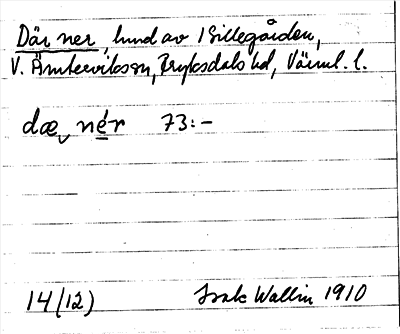 Där ner, lund av Gillegården,
V. Ämtervik sn, Fryksdals hd, Värml. l.
dæ nér 73:-
14/12) Isak Wallin 1910